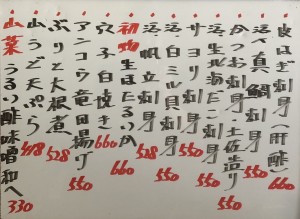 皮はぎ刺身(肝酢)
活〆真鯛刺身 550
かつお刺身・土佐造り
生北海だこ刺身 550
サヨリ刺身 550
活白ミル貝刺身 550
活帆立刺身 550
初物生ほたるいか 660
穴子白焼き 660
アンコウ竜田揚げ 550
ぶり大根煮 528
山うど天ぷら 418
山菜うるい酢味噌和へ 330